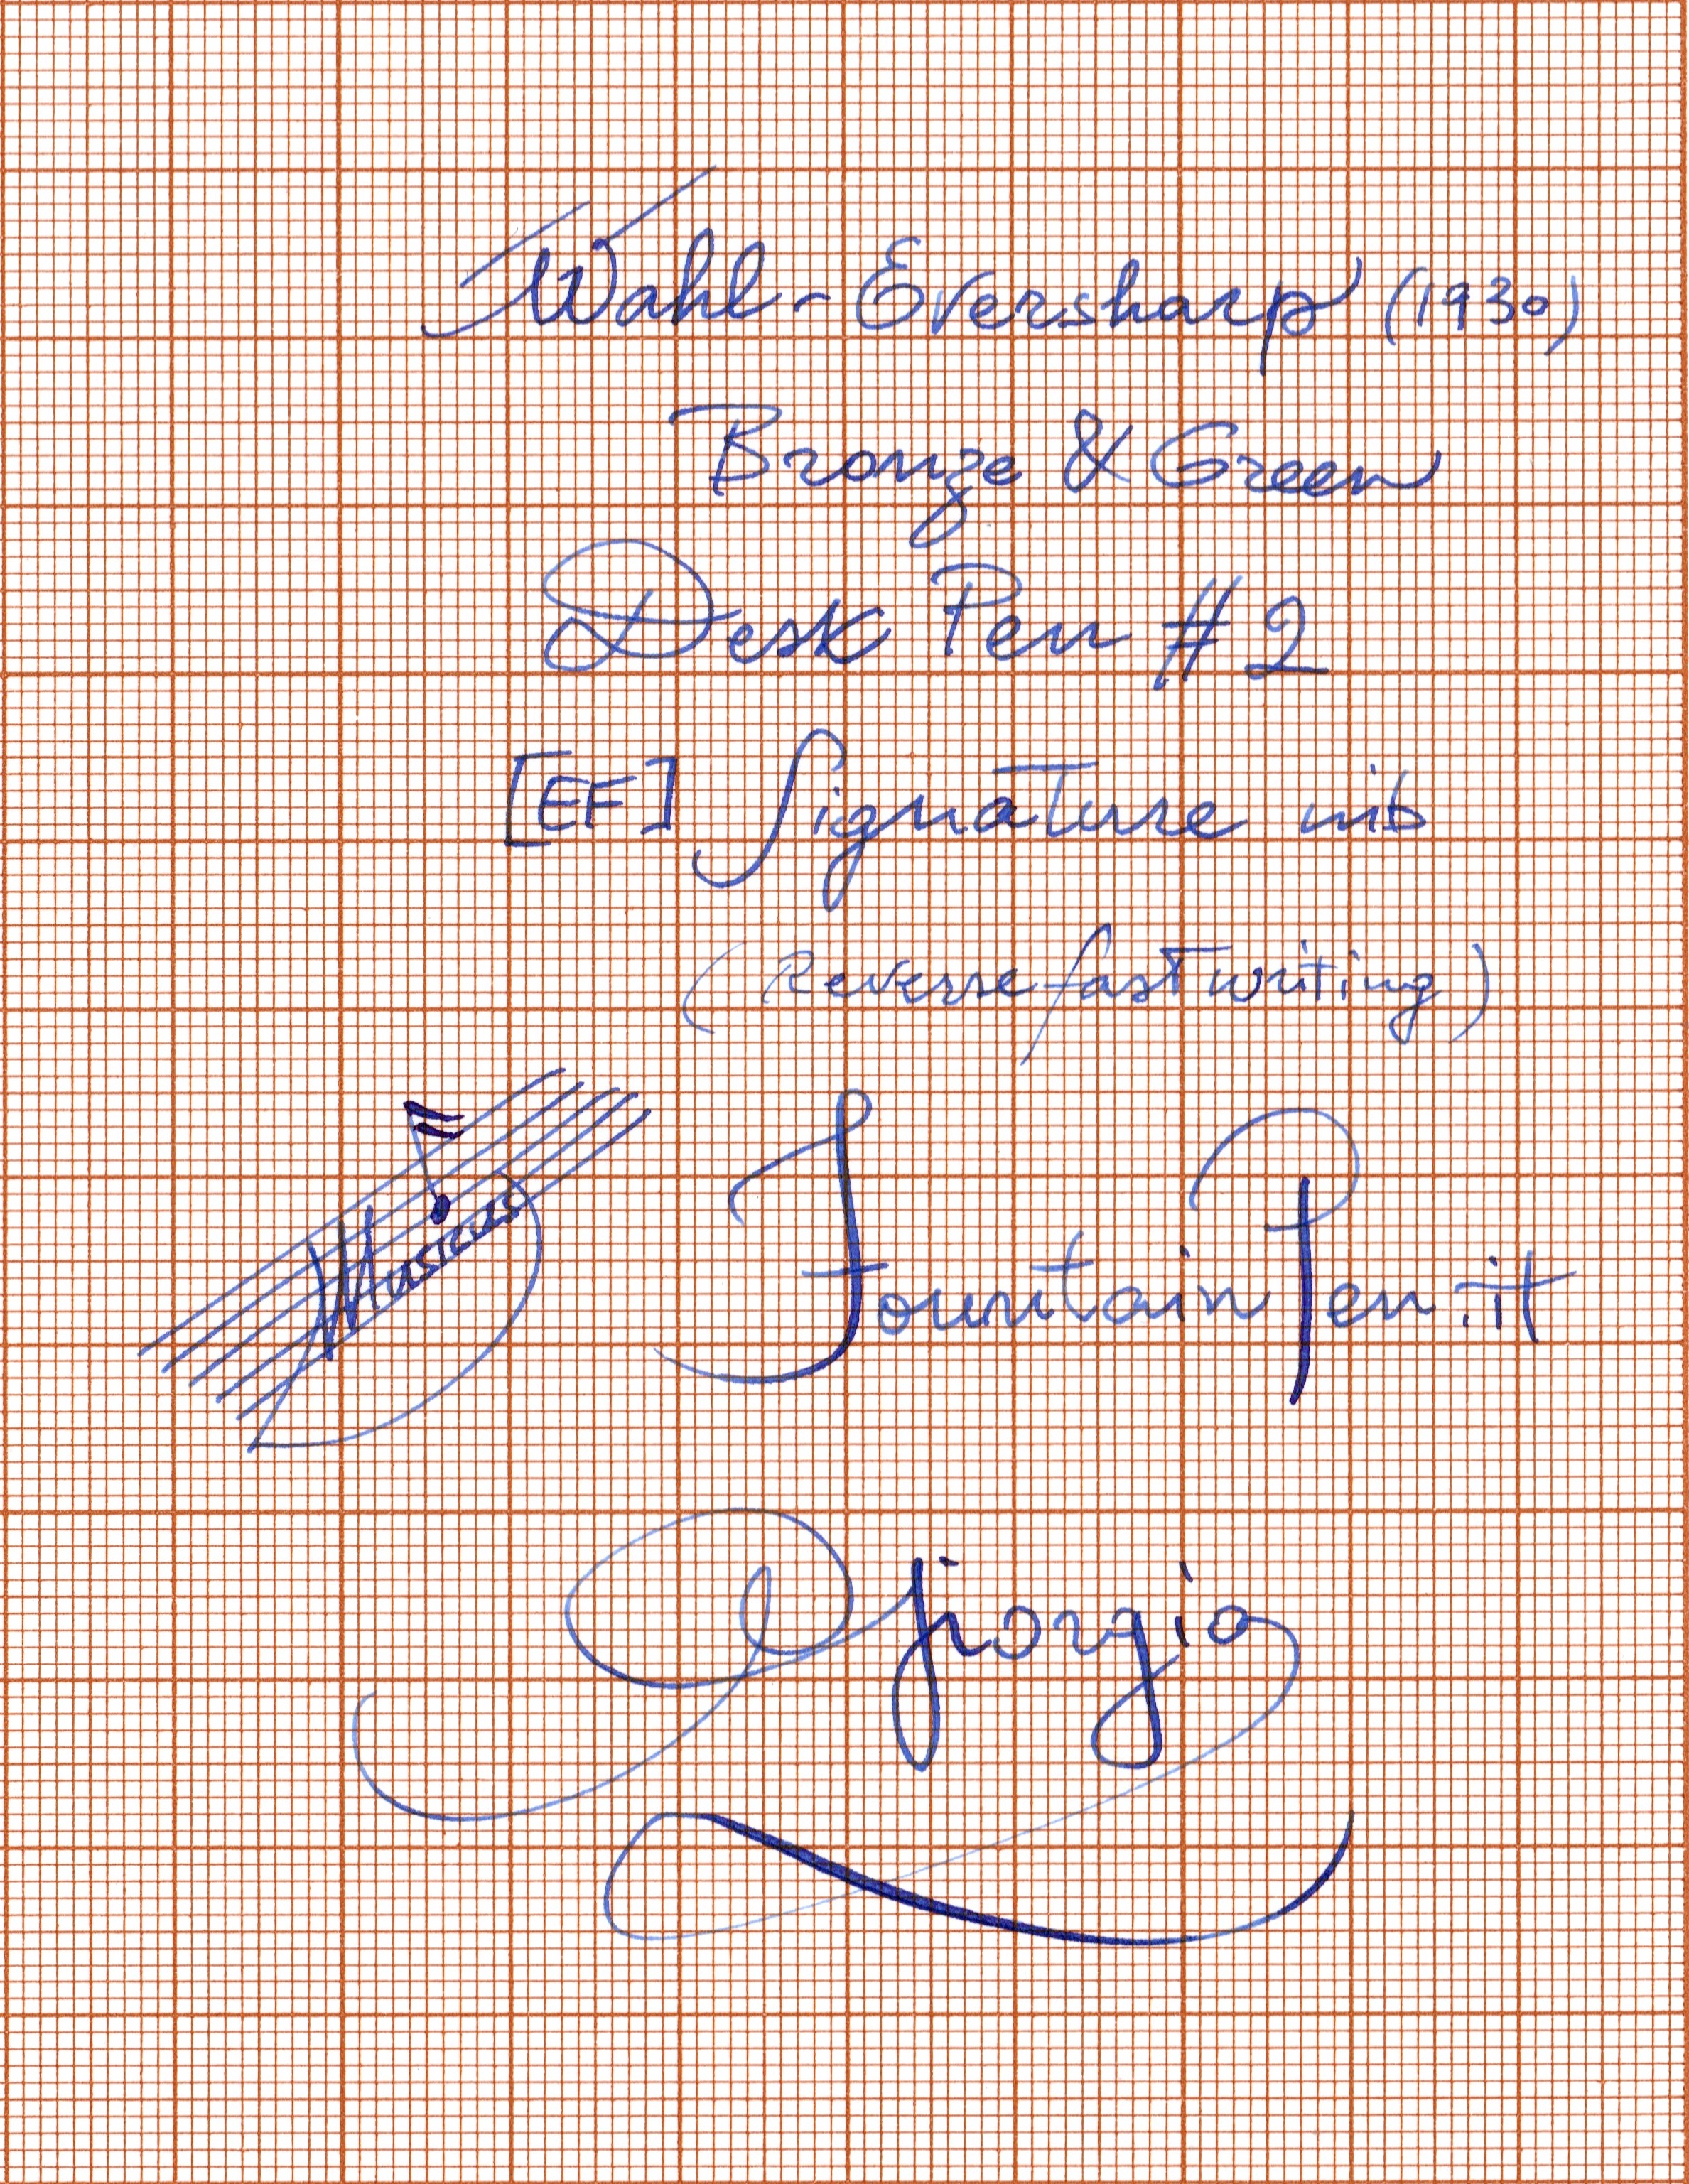 Wahl-Eversharp (1930)
Bronze & Green
Desk Pen #2
[EF] Signature nib
(Reverse fast writing)
Musicus
FountainPen.it
Giorgio